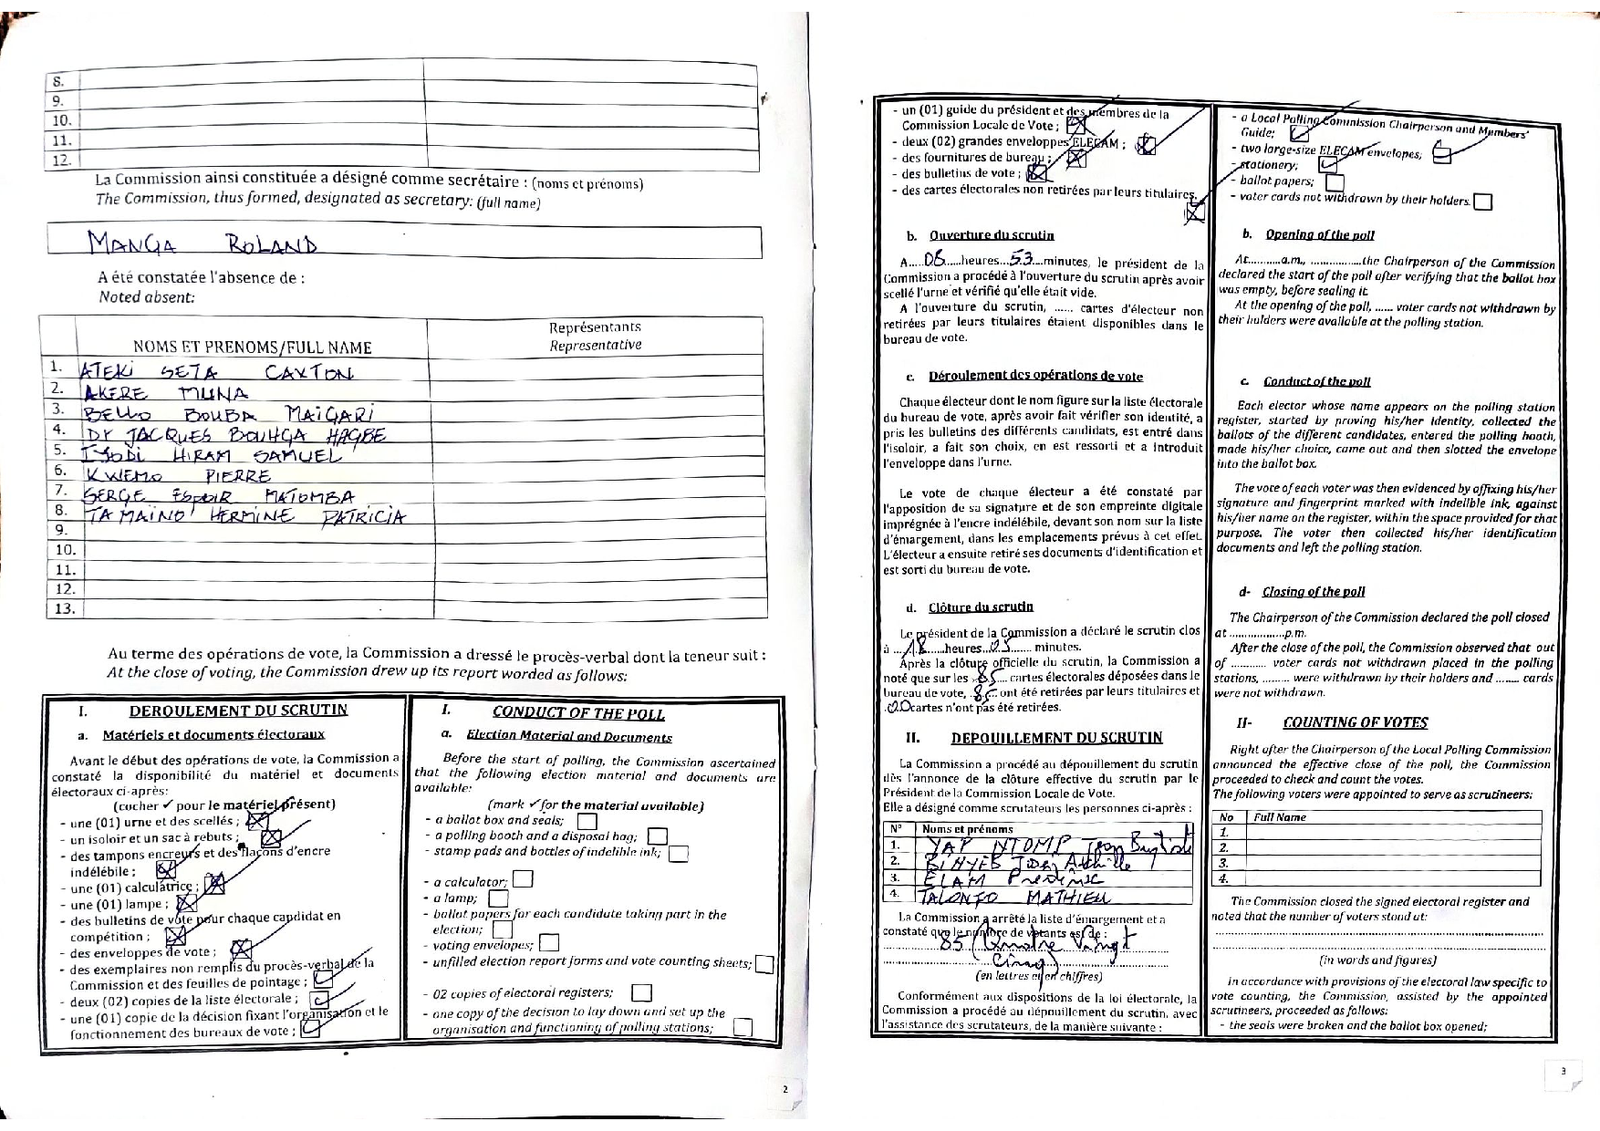 8.
9.
10.
11.
12.
La Commission ainsi constituée a désigné comme secrétaire : (noms et prénoms)
The Commission, thus formed, designated as secretary: (full name)
MANGA ROLAND
A été constatée l'absence de :
Noted absent:
NOMS ET PRENOMS/FULL NAME
Représentants
Representative
1. ATEKI SETA CAXTON
2. AKERE MUNA
3. BELLO BOUBA MAIGARI
4. Dr JACQUES BOUHGA HAGBE
5. IYODI HIRAM SAMUEL
6. KWEMO PIERRE
7. SERGE ESPOIR MATOMBA
8. TAMAINO HERMINE PATRICIA
9.
10.
11.
12.
13.
Au terme des opérations de vote, la Commission a dressé le procès-verbal dont la teneur suit :
At the close of voting, the Commission drew up its report worded as follows:
I. DEROULEMENT DU SCRUTIN
a. Matériels et documents électoraux
Avant le début des opérations de vote, la Commission a
constaté la disponibilité du matériel et documents
électoraux ci-après:
(cocher ✓ pour le matériel présent)
- une (01) urne et des scellés ;
- un isoloir et un sac à rebuts ;
- des tampons encreurs et des flacons d'encre
indélébile ;
- une (01) calculatrice ;
- une (01) lampe ;
- des bulletins de vote pour chaque candidat en
compétition ;
- des enveloppes de vote ;
- des exemplaires non remplis du procès-verbal de la
Commission et des feuilles de pointage ;
- deux (02) copies de la liste électorale ;
- une (01) copie de la décision fixant l'organisation et le
fonctionnement des bureaux de vote ;
I. CONDUCT OF THE POLL
a. Election Material and Documents
Before the start of polling, the Commission ascertained
that the following election material and documents are
available:
(mark ✓ for the material available)
- a ballot box and seals;
- a polling booth and a disposal bag;
- stamp pads and bottles of indelible ink;
- a calculator;
- a lamp;
- ballot papers for each candidate taking part in the
election;
- voting envelopes;
- unfilled election report forms and vote counting sheets;
- 02 copies of electoral registers;
- one copy of the decision to lay down and set up the
organisation and functioning of polling stations;
2
- un (01) guide du président et des membres de la
Commission Locale de Vote ;
- deux (02) grandes enveloppes ELECAM ;
- des fournitures de bureau ;
- des bulletins de vote ;
- des cartes électorales non retirées par leurs titulaires.
b. Ouverture du scrutin
A.....08.....heures...53....minutes, le président de la
Commission a procédé à l'ouverture du scrutin après avoir
scellé l'urne et vérifié qu'elle était vide.
A l'ouverture du scrutin, ...... cartes d'électeur non
retirées par leurs titulaires étaient disponibles dans le
bureau de vote.
c. Déroulement des opérations de vote
Chaque électeur dont le nom figure sur la liste électorale
du bureau de vote, après avoir fait vérifier son identité, a
pris les bulletins des différents candidats, est entré dans
l'isoloir, a fait son choix, en est ressorti et a introduit
l'enveloppe dans l'urne.
Le vote de chaque électeur a été constaté par
l'apposition de sa signature et de son empreinte digitale
imprégnée à l'encre indélébile, devant son nom sur la liste
d'émargement, dans les emplacements prévus à cet effet.
L'électeur a ensuite retiré ses documents d'identification et
est sorti du bureau de vote.
d. Clôture du scrutin
Le président de la Commission a déclaré le scrutin clos
à ...18.....heures...05.... minutes.
Après la clôture officielle du scrutin, la Commission a
noté que sur les .85.... cartes électorales déposées dans le
bureau de vote, .85.. ont été retirées par leurs titulaires et
.00cartes n'ont pas été retirées.
II. DEPOUILLEMENT DU SCRUTIN
La Commission a procédé au dépouillement du scrutin
dès l'annonce de la clôture effective du scrutin par le
Président de la Commission Locale de Vote.
Elle a désigné comme scrutateurs les personnes ci-après :
N° Noms et prénoms
1. YAP NTOMP Jean Baptiste
2. BINYEB Jean Achille
3. ELAM
4. TALONFO MATHIEU
La Commission a arrêté la liste d'émargement et a
constaté que le nombre de votants est de :
85 (Quatre Vingt
Cinq)
(en lettres et en chiffres)
Conformément aux dispositions de la loi électorale, la
Commission a procédé au dépouillement du scrutin, avec
l'assistance des scrutateurs, de la manière suivante :
- a Local Polling Commission Chairperson and Members'
Guide;
- two large-size ELECAM envelopes;
- stationery;
- ballot papers;
- voter cards not withdrawn by their holders.
b. Opening of the poll
At..........a.m., ................the Chairperson of the Commission
declared the start of the poll after verifying that the ballot box
was empty, before sealing it.
At the opening of the poll, ...... voter cards not withdrawn by
their holders were available at the polling station.
c. Conduct of the poll
Each elector whose name appears on the polling station
register, started by proving his/her identity, collected the
ballots of the different candidates, entered the polling booth,
made his/her choice, came out and then slotted the envelope
into the ballot box.
The vote of each voter was then evidenced by affixing his/her
signature and fingerprint marked with indelible ink, against
his/her name on the register, within the space provided for that
purpose. The voter then collected his/her identification
documents and left the polling station.
d- Closing of the poll
The Chairperson of the Commission declared the poll closed
at .................p.m.
After the close of the poll, the Commission observed that out
of ........... voter cards not withdrawn placed in the polling
stations, ......... were withdrawn by their holders and ........ cards
were not withdrawn.
II- COUNTING OF VOTES
Right after the Chairperson of the Local Polling Commission
announced the effective close of the poll, the Commission
proceeded to check and count the votes.
The following voters were appointed to serve as scrutineers:
No Full Name
1.
2.
3.
4.
The Commission closed the signed electoral register and
noted that the number of voters stand at:
(in words and figures)
In accordance with provisions of the electoral law specific to
vote counting, the Commission, assisted by the appointed
scrutineers, proceeded as follows:
- the seals were broken and the ballot box opened;
3